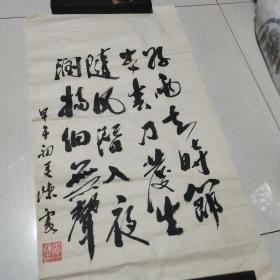 好雨知時節
当春乃發生
隨風潛入夜
潤物細無聲
甲午初夏